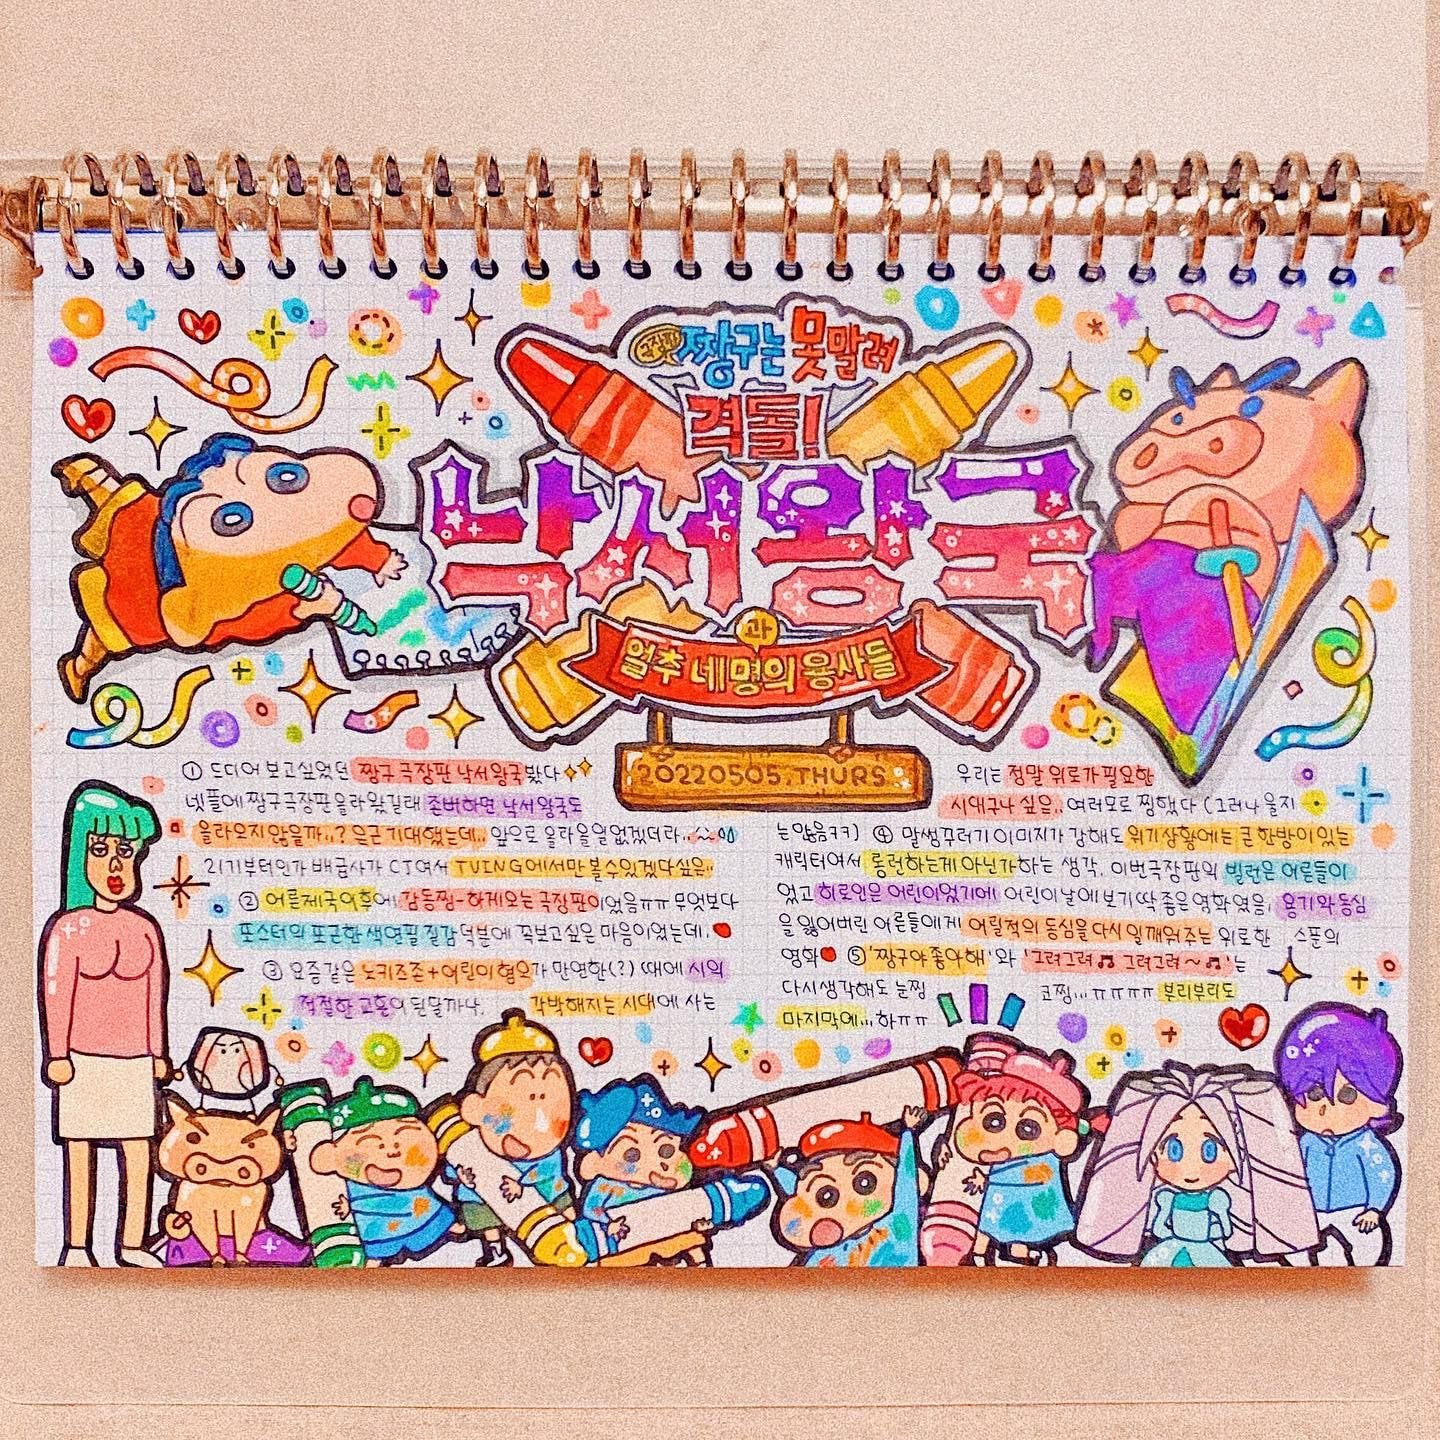 극장판
짱구는 못말려
격돌!
낙서왕국
과
얼추 네명의 용사들
20220505.THURS
① 드디어 보고싶었던 짱구 극장판 낙서왕국 봤다
넷플에 짱구극장판 올라왔길래 존버하면 낙서왕국도
올라오지않을까..? 은근 기대했는데... 앞으로 올라올일없겠더라..
2기부터인가 배급사가 CJ여서 TVING에서만 볼수있겠다싶음..
② 어른제국이후에 감동찡-하게오는 극장판이었음ㅠㅠ 무엇보다
포스터의 포근한 색연필 질감 덕분에 꼭보고싶은 마음이었는데.
③ 요즘같은 노키즈존+어린이 혐오가 만연한(?) 때에 시의
적절한 교훈이 된달까나. 각박해지는 시대에 사는
우리는 정말 위로가 필요한
시대구나 싶음.. 여러모로 찡했다 (그러나 울지
는않음ㅋㅋ) ④ 말썽꾸러기 이미지가 강해도 위기상황에는 큰 한방이 있는
캐릭터여서 롱런하는게 아닌가하는 생각. 이번극장판의 빌런은 어른들이
었고 히로인은 어린이었기에 어린이날에 보기 딱 좋은 영화였음. 용기와 동심
을 잃어버린 어른들에게 어릴적의 동심을 다시 일깨워주는 위로한 스푼의
영화 ⑤ '짱구야 좋아해'와 '그려그려♬ 그려그려~♬'는
다시생각해도 눈찡 코찡...ㅠㅠㅠㅠ 부리부리도
마지막에... 하ㅠㅠ